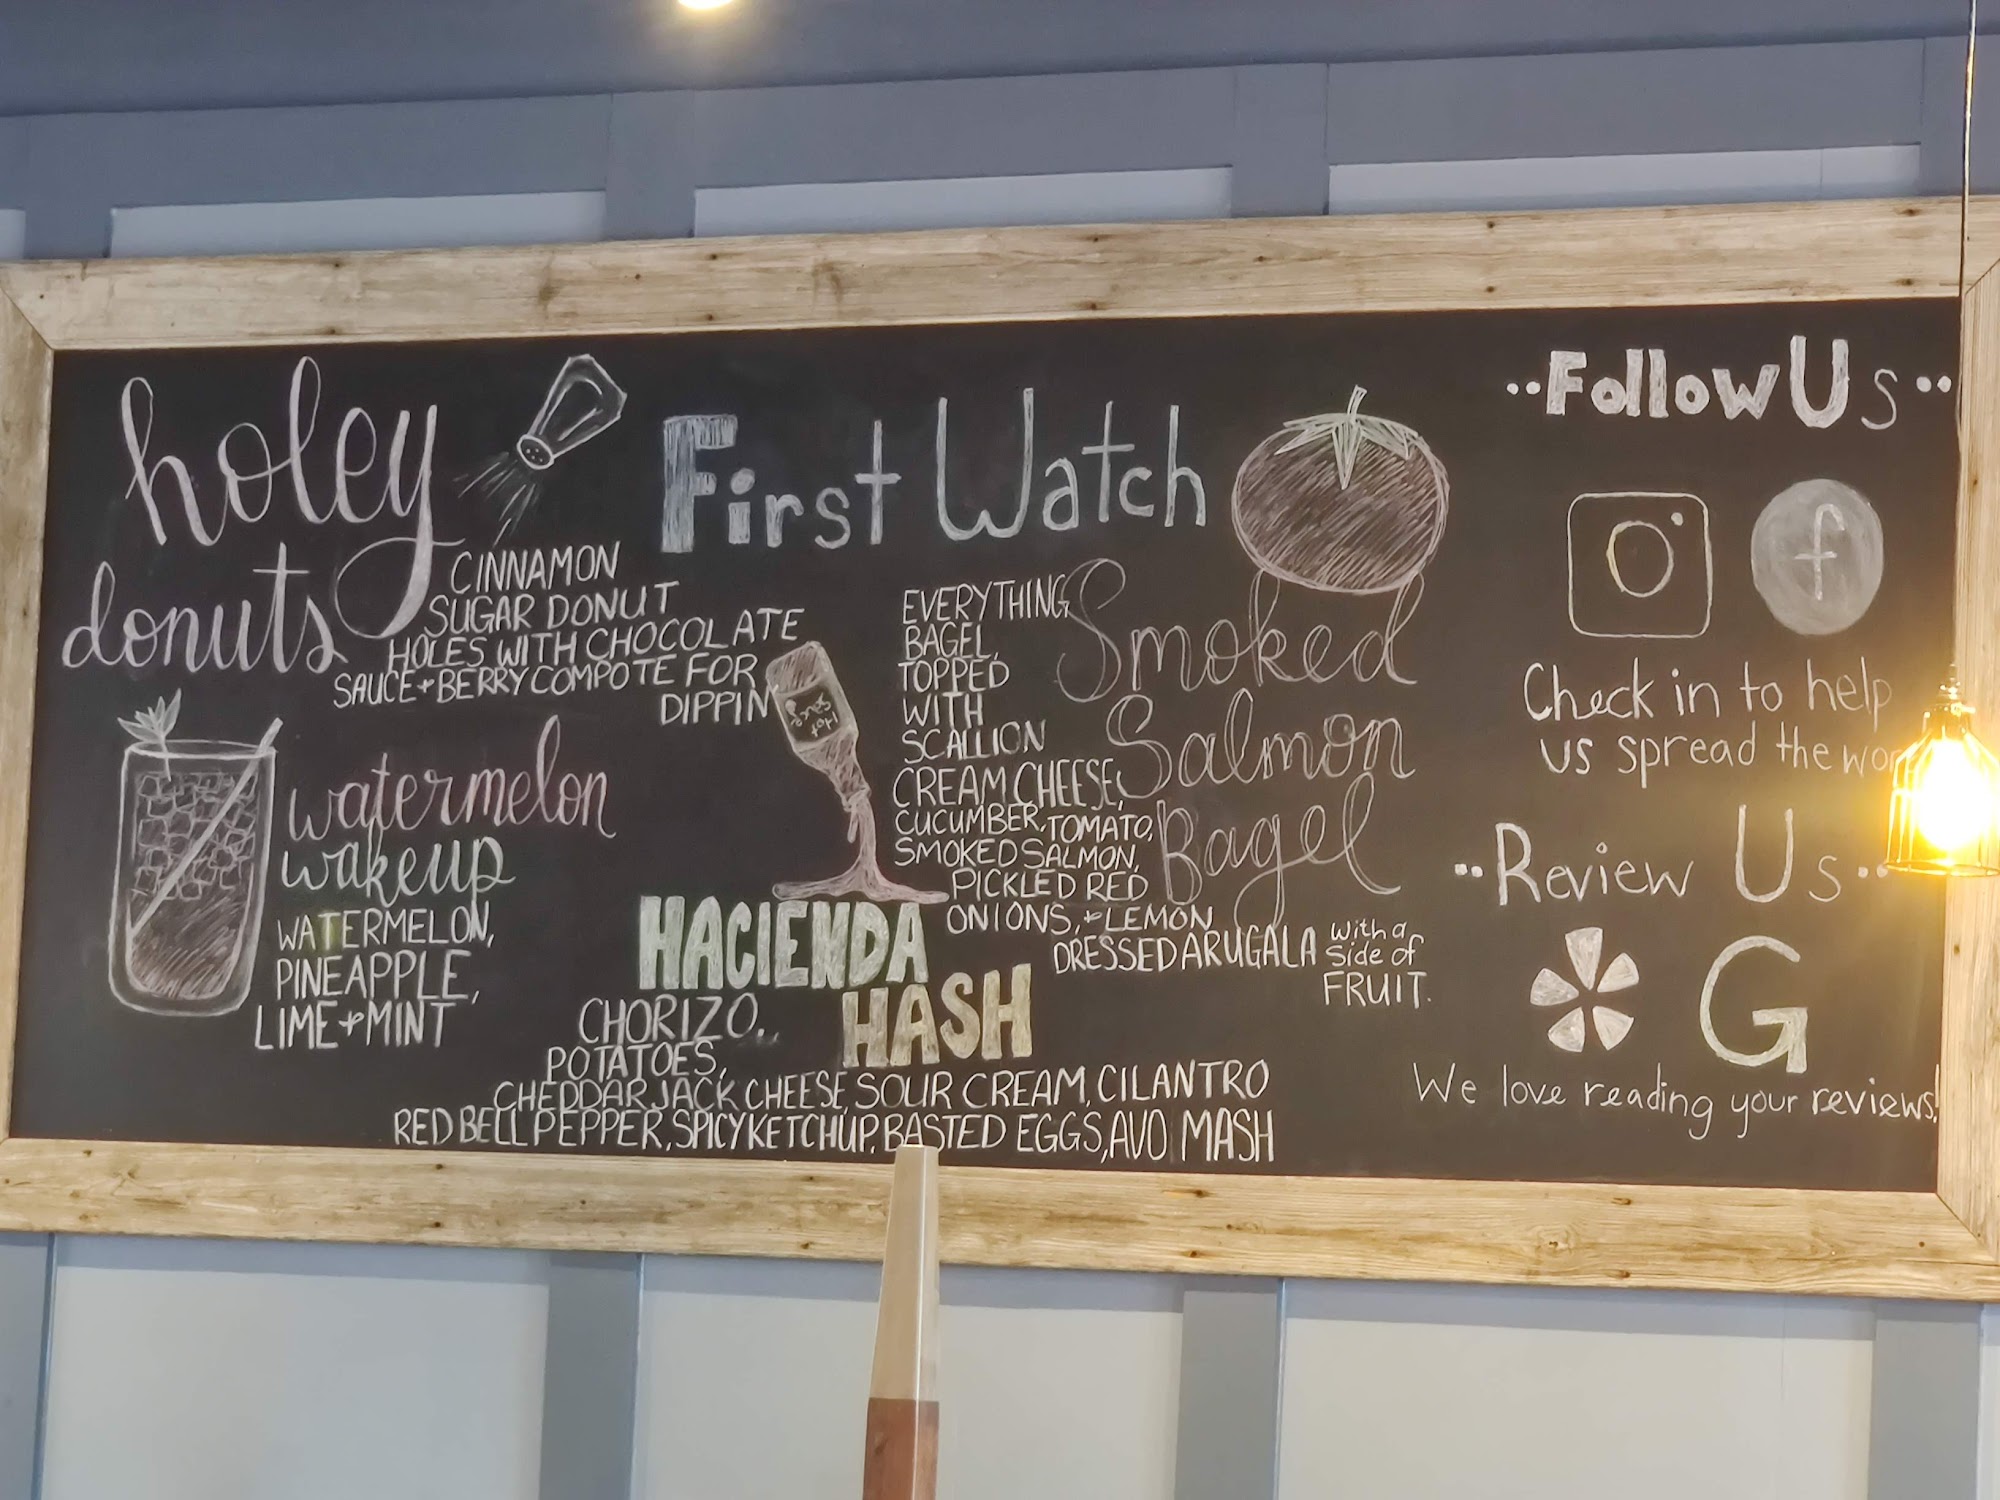 holey
donuts
CINNAMON
SUGAR DONUT
HOLES WITH CHOCOLATE
SAUCE + BERRY COMPOTE FOR
DIPPIN
watermelon
wakeup
WATERMELON,
PINEAPPLE,
LIME + MINT
First Watch
Hot
Sauce
HACIENDA
HASH
CHORIZO,
POTATOES,
CHEDDAR JACK CHEESE, SOUR CREAM, CILANTRO
RED BELL PEPPER, SPICY KETCHUP, BASTED EGGS, AVO MASH
Smoked
Salmon
Bagel
EVERYTHING
BAGEL,
TOPPED
WITH
SCALLION
CREAM CHEESE,
CUCUMBER, TOMATO,
SMOKED SALMON,
PICKLED RED
ONIONS, + LEMON
DRESSED ARUGALA with a
side of
FRUIT.
Follow Us
f
Check in to help
us spread the
Review Us
G
We love reading your reviews!